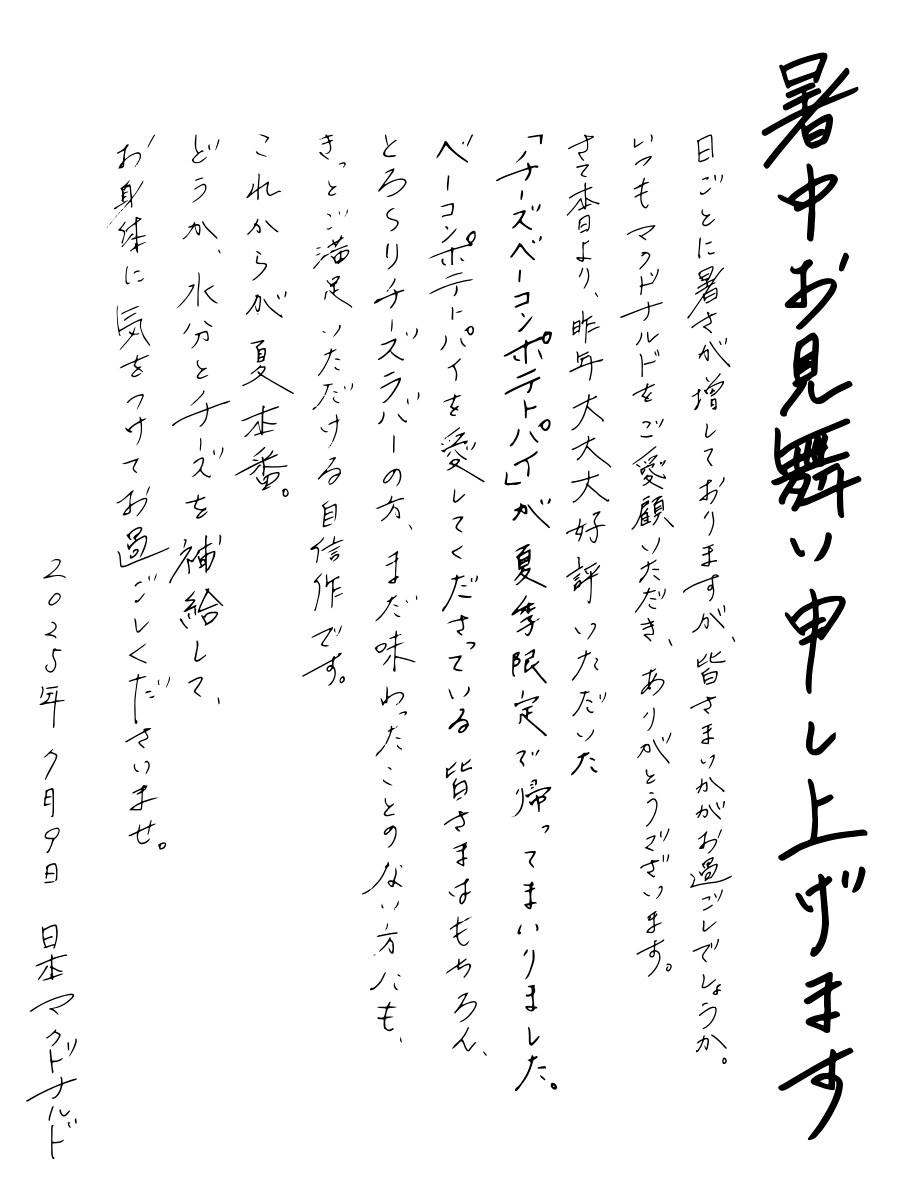 暑中お見舞い申し上げます
日ごとに暑さが増しておりますが、皆さまいかがお過ごしでしょうか。
いつもマクドナルドをご愛顧いただき、ありがとうございます。
さて本日より、昨年大大大好評いただいた
「チーズベーコンポテトパイ」が夏季限定で帰ってまいりました。
ベーコンポテトパイを愛してくださっている皆さまはもちろん、
とろ〜りチーズラバーの方、まだ味わったことのない方にも、
きっとご満足いただける自信作です。
これからが夏本番。
どうか、水分とチーズを補給して、
お身体に気をつけてお過ごしくださいませ。
2025年7月9日 日本マクドナルド